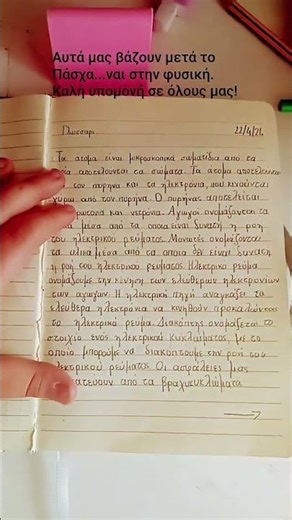 Αυτά μας βάζουν μετά το
Πάσχα...ναι στην φυσική.
Καλή υπομονή σε όλους μας!
22/4/24
Τα άτομα είναι μικροσκοπικά σωματίδια από τα
οποία αποτελούνται τα σώματα. Τα άτομα αποτελούνται
τον πυρήνα και τα ηλεκτρόνια, που κινούνται
γύρω από τον πυρήνα. Ο πυρήνας αποτελείται
πρωτόνια και νετρόνια. Αγωγοί ονομάζονται τα
μέσα από τα οποία είναι δυνατή η ροή
του ηλεκτρικού ρεύματος. Μονωτές ονομάζονται
τα υλικά μέσα από τα οποία δεν είναι δυνατή
η ροή του ηλεκτρικού ρεύματος. Ηλεκτρικό ρεύμα
ονομάζουμε την κίνηση των ελεύθερων ηλεκτρονίων
των αγωγών. Η ηλεκτρική πηγή αναγκάζει τα
ελεύθερα ηλεκτρόνια να κινηθούν προκαλώντας
το ηλεκτρικό ρεύμα. Διακόπτης ονομάζεται το
στοιχείο ενός ηλεκτρικού κυκλώματος με το
οποίο μπορούμε να διακόπτουμε την ροή του
ηλεκτρικού ρεύματος. Οι ασφάλειες μας
από τα βραχυκυκλώματα